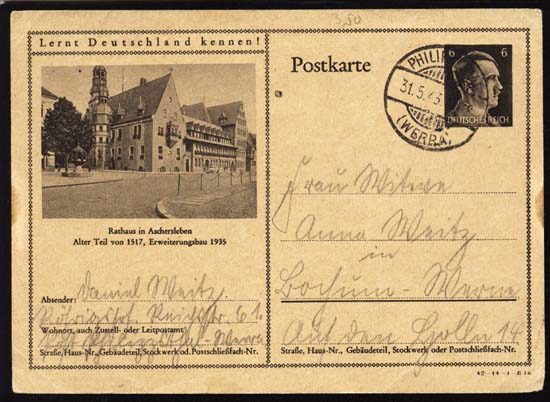 350
Lernt Deutschland kennen!
Rathaus in Aschersleben
Alter Teil von 1517, Erweiterungsbau 1935
Absender: Daniel Weitz
Wohnort, auch Zustell- oder Leitpostamt
Straße, Haus-Nr., Gebäudeteil, Stockwerk od. Postschließfach-Nr.
Postkarte
PHILIP
31.5.43
(WERRA)
6 6
DEUTSCHES REICH
Frau Witwe
Anna Weitz
in
Bochum-Werne
Auf den Holln 14
Straße, Haus-Nr., Gebäudeteil, Stockwerk oder Postschließfach-Nr.